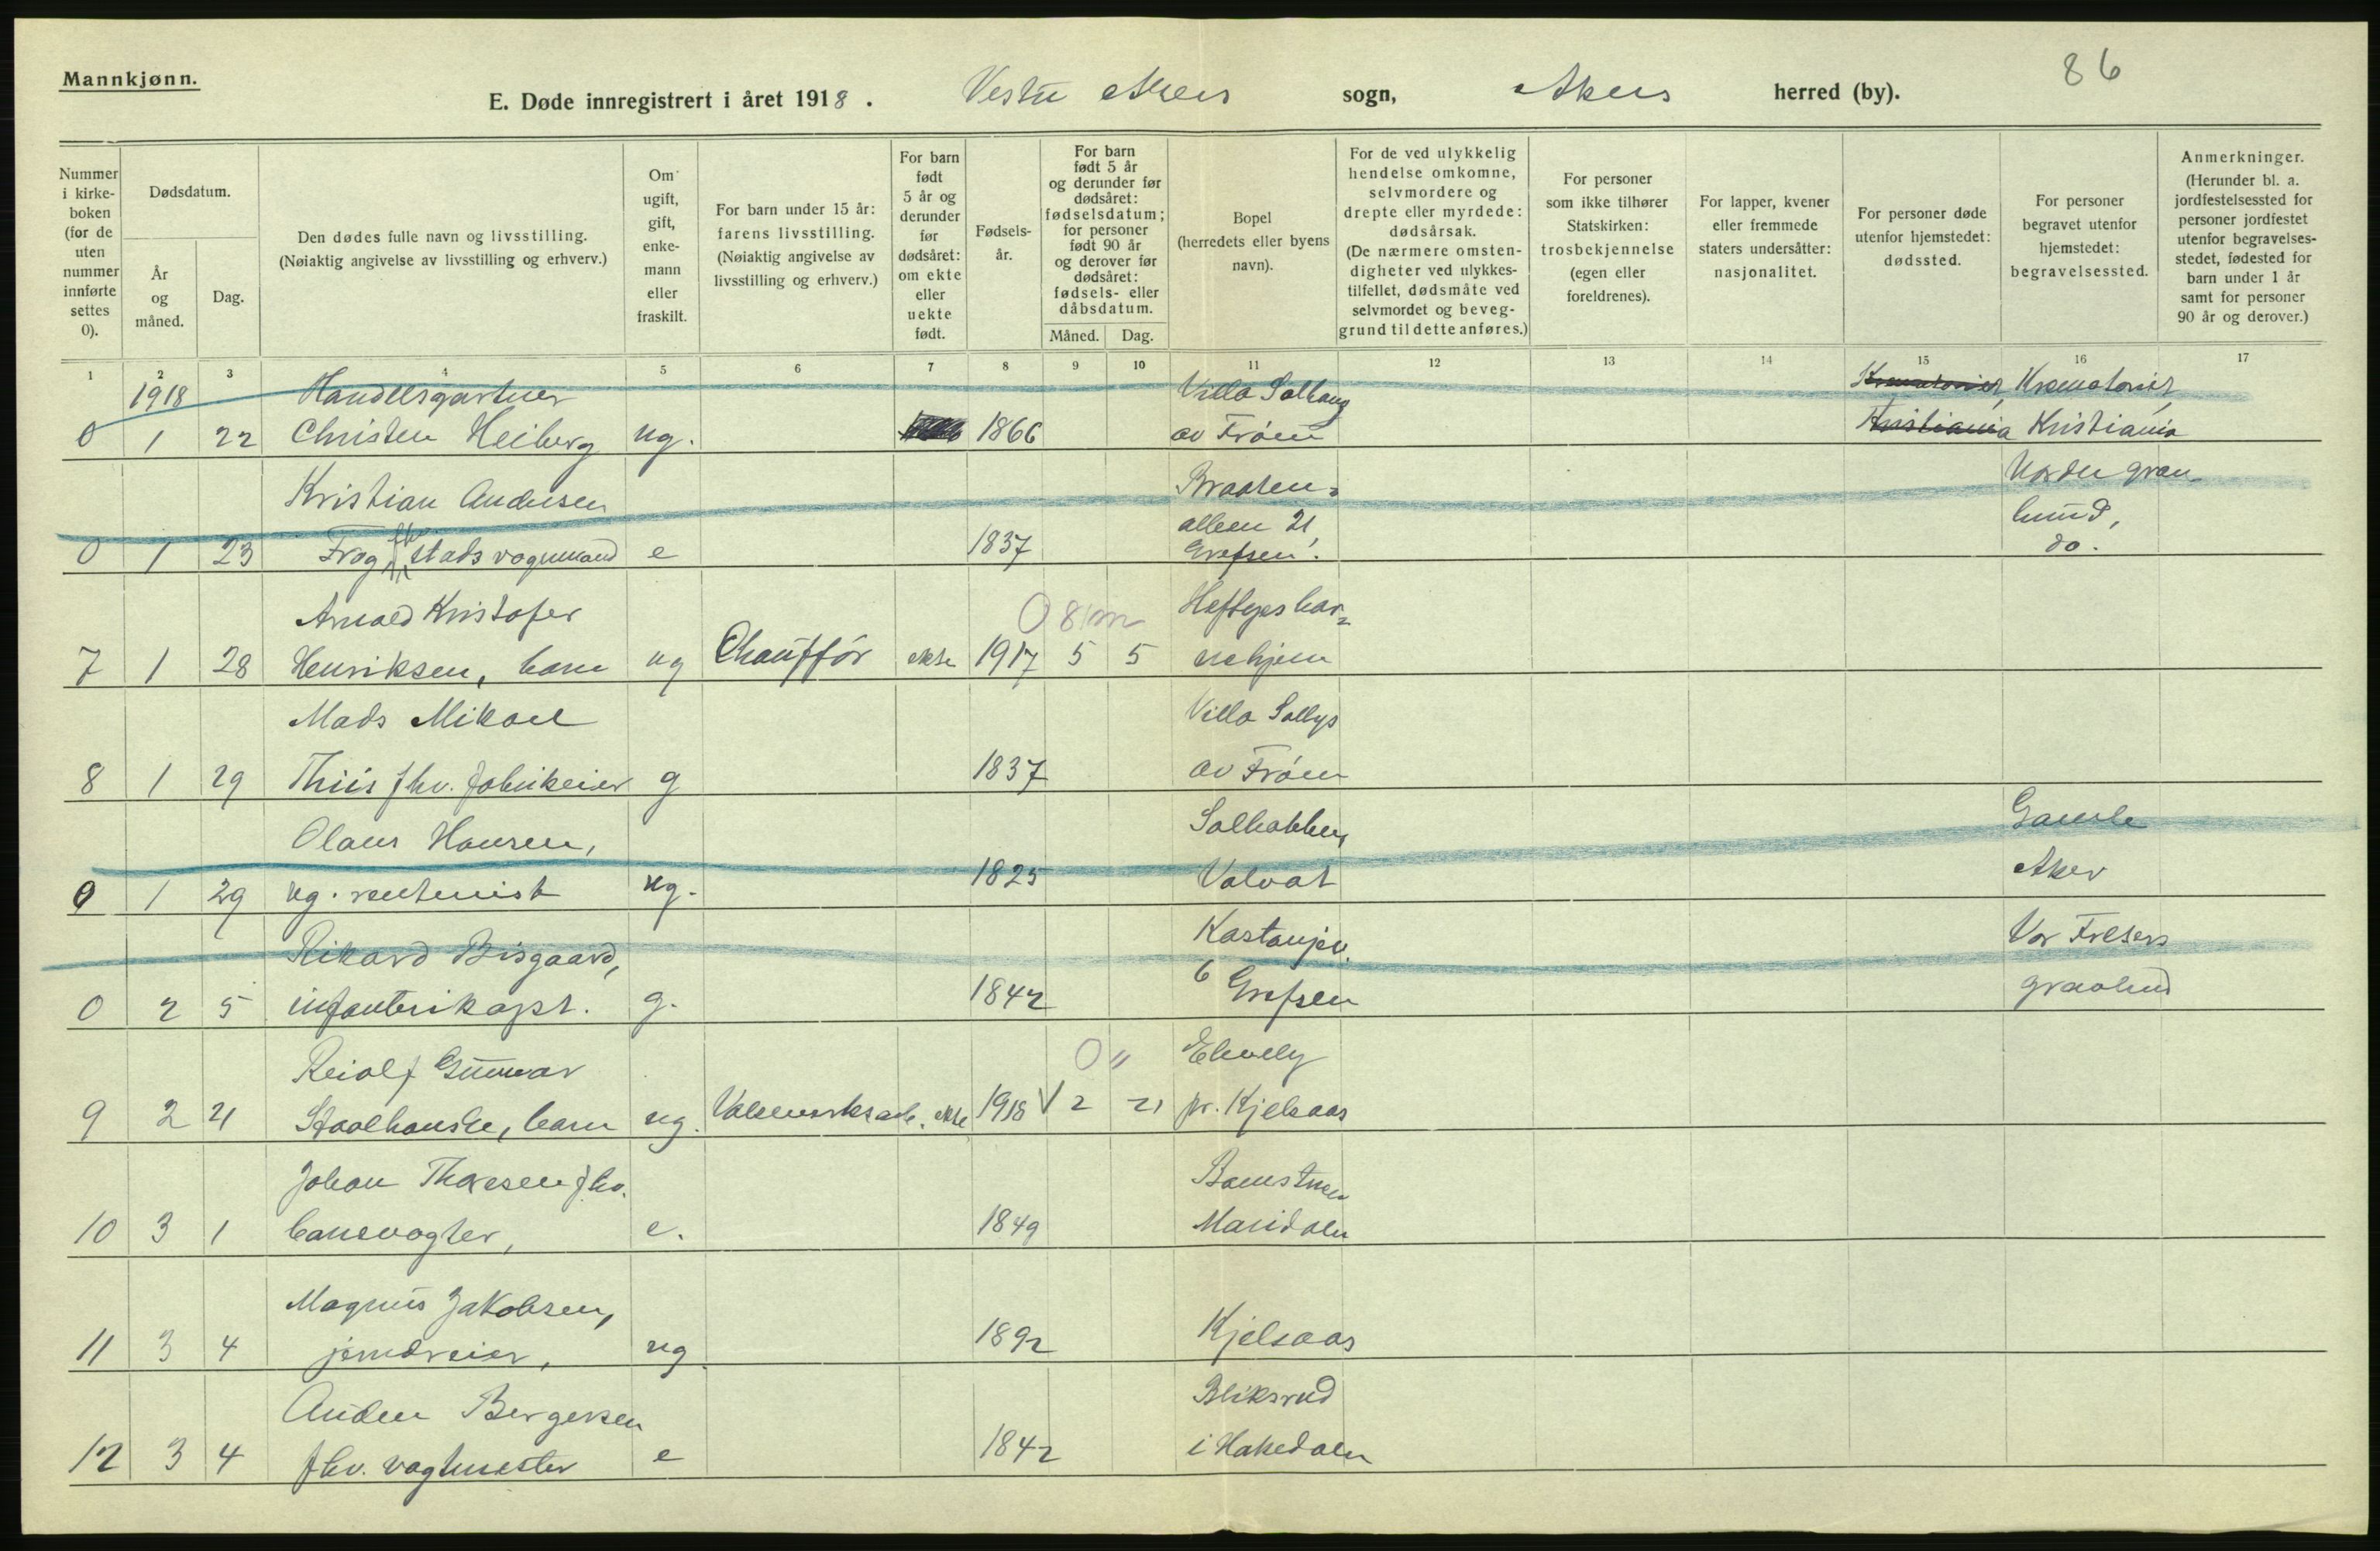 Mannkjønn.
86
E. Døde innregistrert i året 1918. Vestre Akers sogn, Akers herred (by).
Nummer i kirke-boken (for de uten nummer innførte settes 0).
Dødsdatum.
År og måned.
Dag.
Den dødes fulle navn og livsstilling. (Nøiaktig angivelse av livsstilling og erhverv.)
Om ugift, gift, enke-mann eller fraskilt.
For barn under 15 år: farens livsstilling. (Nøiaktig angivelse av livsstilling og erhverv.)
For barn født 5 år og derunder før dødsåret: om ekte eller uekte født.
Fødsels-år.
For barn født 5 år og derunder før dødsåret: fødselsdatum; for personer født 90 år og derover før dødsåret: fødsels- eller dåbsdatum.
Måned.
Dag.
Bopel (herredets eller byens navn).
For de ved ulykkelig hendelse omkomne, selvmordere og drepte eller myrdede: dødsårsak. (De nærmere omsten-digheter ved ulykkes-tilfellet, dødsmåte ved selvmordet og beveg-grund til dette anføres.)
For personer som ikke tilhører Statskirken: trosbekjennelse (egen eller foreldrenes).
For lapper, kvener eller fremmede staters undersåtter: nasjonalitet.
For personer døde utenfor hjemstedet: dødssted.
For personer begravet utenfor hjemstedet: begravelsessted.
Anmerkninger. (Herunder bl. a. jordfestelsessted for personer jordfestet utenfor begravelses-stedet, fødested for barn under 1 år samt for personer 90 år og derover.)
1 2 3 4 5 6 7 8 9 10 11 12 13 14 15 16 17
1918 Handelsgartner Villa Solhaug Krematoriet, Krematoriet,
0 1 22 Christen Heiberg ug. 1866 av Frøen Kristiania Kristiania
Kristian Andersen Braaten= Nordre grav-
alleen 21, lund,
0 1 23 Frog stads vognmand e 1837 Grefsen. do.
Arnold Kristofer 0 8 m Heftyes bar=
7 1 28 Henriksen, barn ug Chauffør ekte 1917 5 5 nehjem
Mads Mikael Villa Sollys
8 1 29 Thiis fhv. fabrikeier g 1837 av Frøen
Olaus Hansen, Solbakken, Gamle
0 1 29 ug. rentenist ug. 1825 Volvat Aker
Rikard Bisgaard, Kastanjev. Vor Frelsers
0 2 5 infanterikapt. g. 1842 6 Grefsen gravlund
Reiolf Gunnar 0 " Elvely
9 2 21 barn ug. Valseverksarb. ekte 1918 2 21 pr. Kjelsaas
Johan Thoresen fhv.
10 3 1 banevogter, e. 1849 Maridalen
Magnus Jakobsen,
11 3 4 ug. 1892 Kjelsaas
Anders Bergersen Bliksrud
12 3 4 fhv. vagtmester e 1842 i Hakedalen